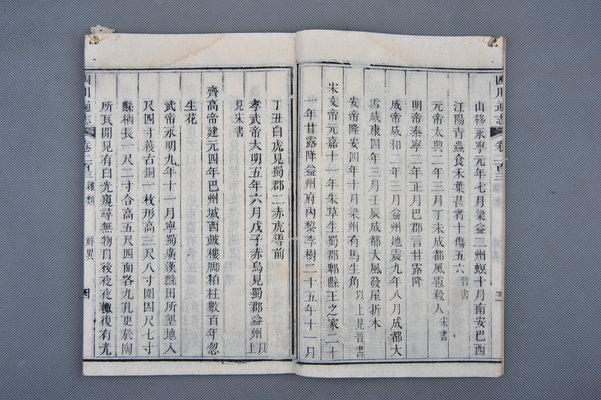 四川通志
卷二百三
雜類
山移永寧元年七月梁益二州螟十月南安巴西
江陽青蟲食禾葉甚者十傷五六晉書
元帝太興二年三月丁未成都風雹殺人宋書
明帝泰寧二年正月巴郡言甘露降
成帝咸和二年三月益州地震九年八月成都大
雪咸康四年三月壬辰成都大風發屋折木
安帝隆安四年十月梁州有馬生角以上見晉書
宋文帝元嘉十一年朱草生蜀郡郫縣王之家二十
一年甘露降益州府內黎李樹二十五年十一月
丁丑白虎見蜀郡二赤虎導前
孝武帝大明五年六月戊子赤烏見蜀郡益州上以
見宋書
齊高帝建元四年巴州城西鼓樓腳柏柱數百年忽
生花
武帝永明九年十一月寧蜀廣漢縣田所墾地入
尺四寸獲古銅一枚形高三尺八寸圍四尺七寸
縣柄長一尺二寸合高五尺四面各九孔更於陶
所瓦間見有白光窺尋無物自後夜夜輒復有光
四川通志
卷二百三
雜類
祥異